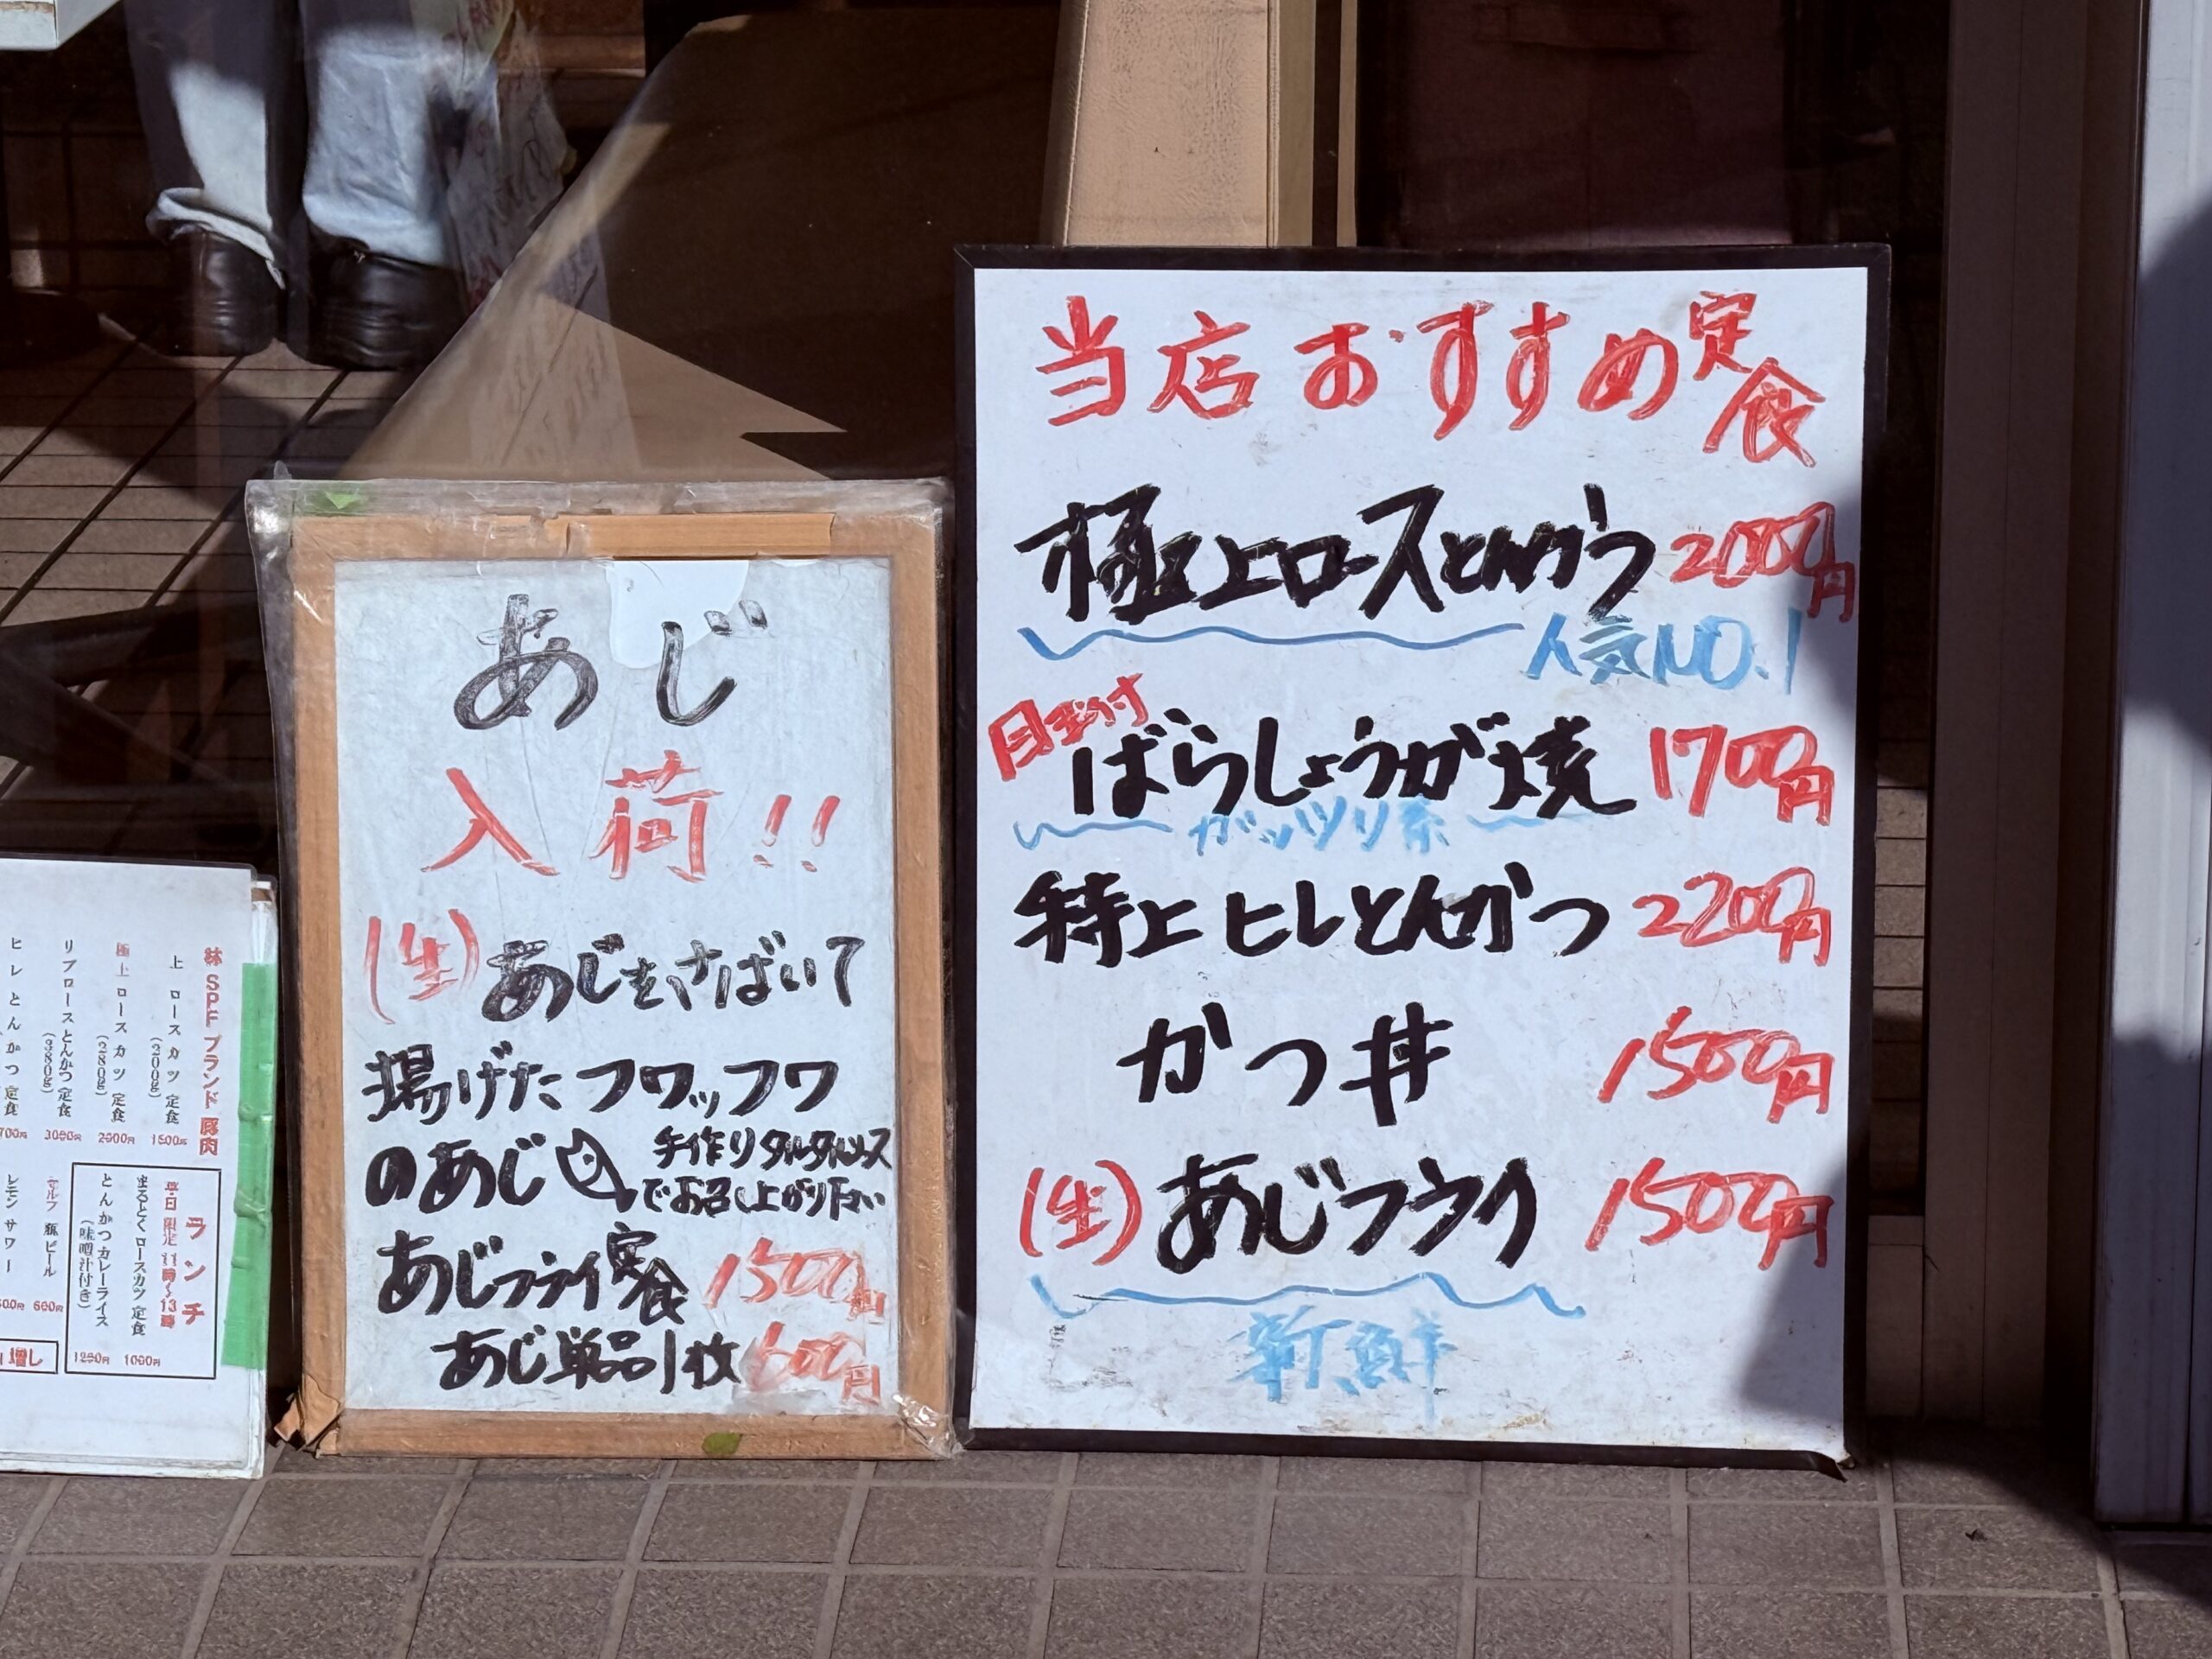 当店おすすめ定食
極上ロースとんかつ 2000円
人気NO.1
目玉付
ばらしょうが焼 1700円
ガッツリ系
特上ヒレとんかつ 2200円
かつ丼 1500円
(生)あじフライ 1500円
新鮮
あじ
入荷!!
(生)あじをさばいて
揚げたフワッフワ
のあじ
手作りタルタルソース
でお召し上がり下さい
あじフライ定食 1500円
あじ単品1枚 600円
林SPFブランド豚肉
上ロースカツ定食
(200g)
1500円
極上ロースカツ定食
(280g)
2000円
リブロースとんかつ定食
(380g)
3000円
ヒレとんかつ定食
700円
ランチ
平日限定 11時~13時
まるとくロースカツ定食
1000円
とんかつカレーライス
(味噌汁付き)
1250円
瓶ビール
600円
レモンサワー
増し